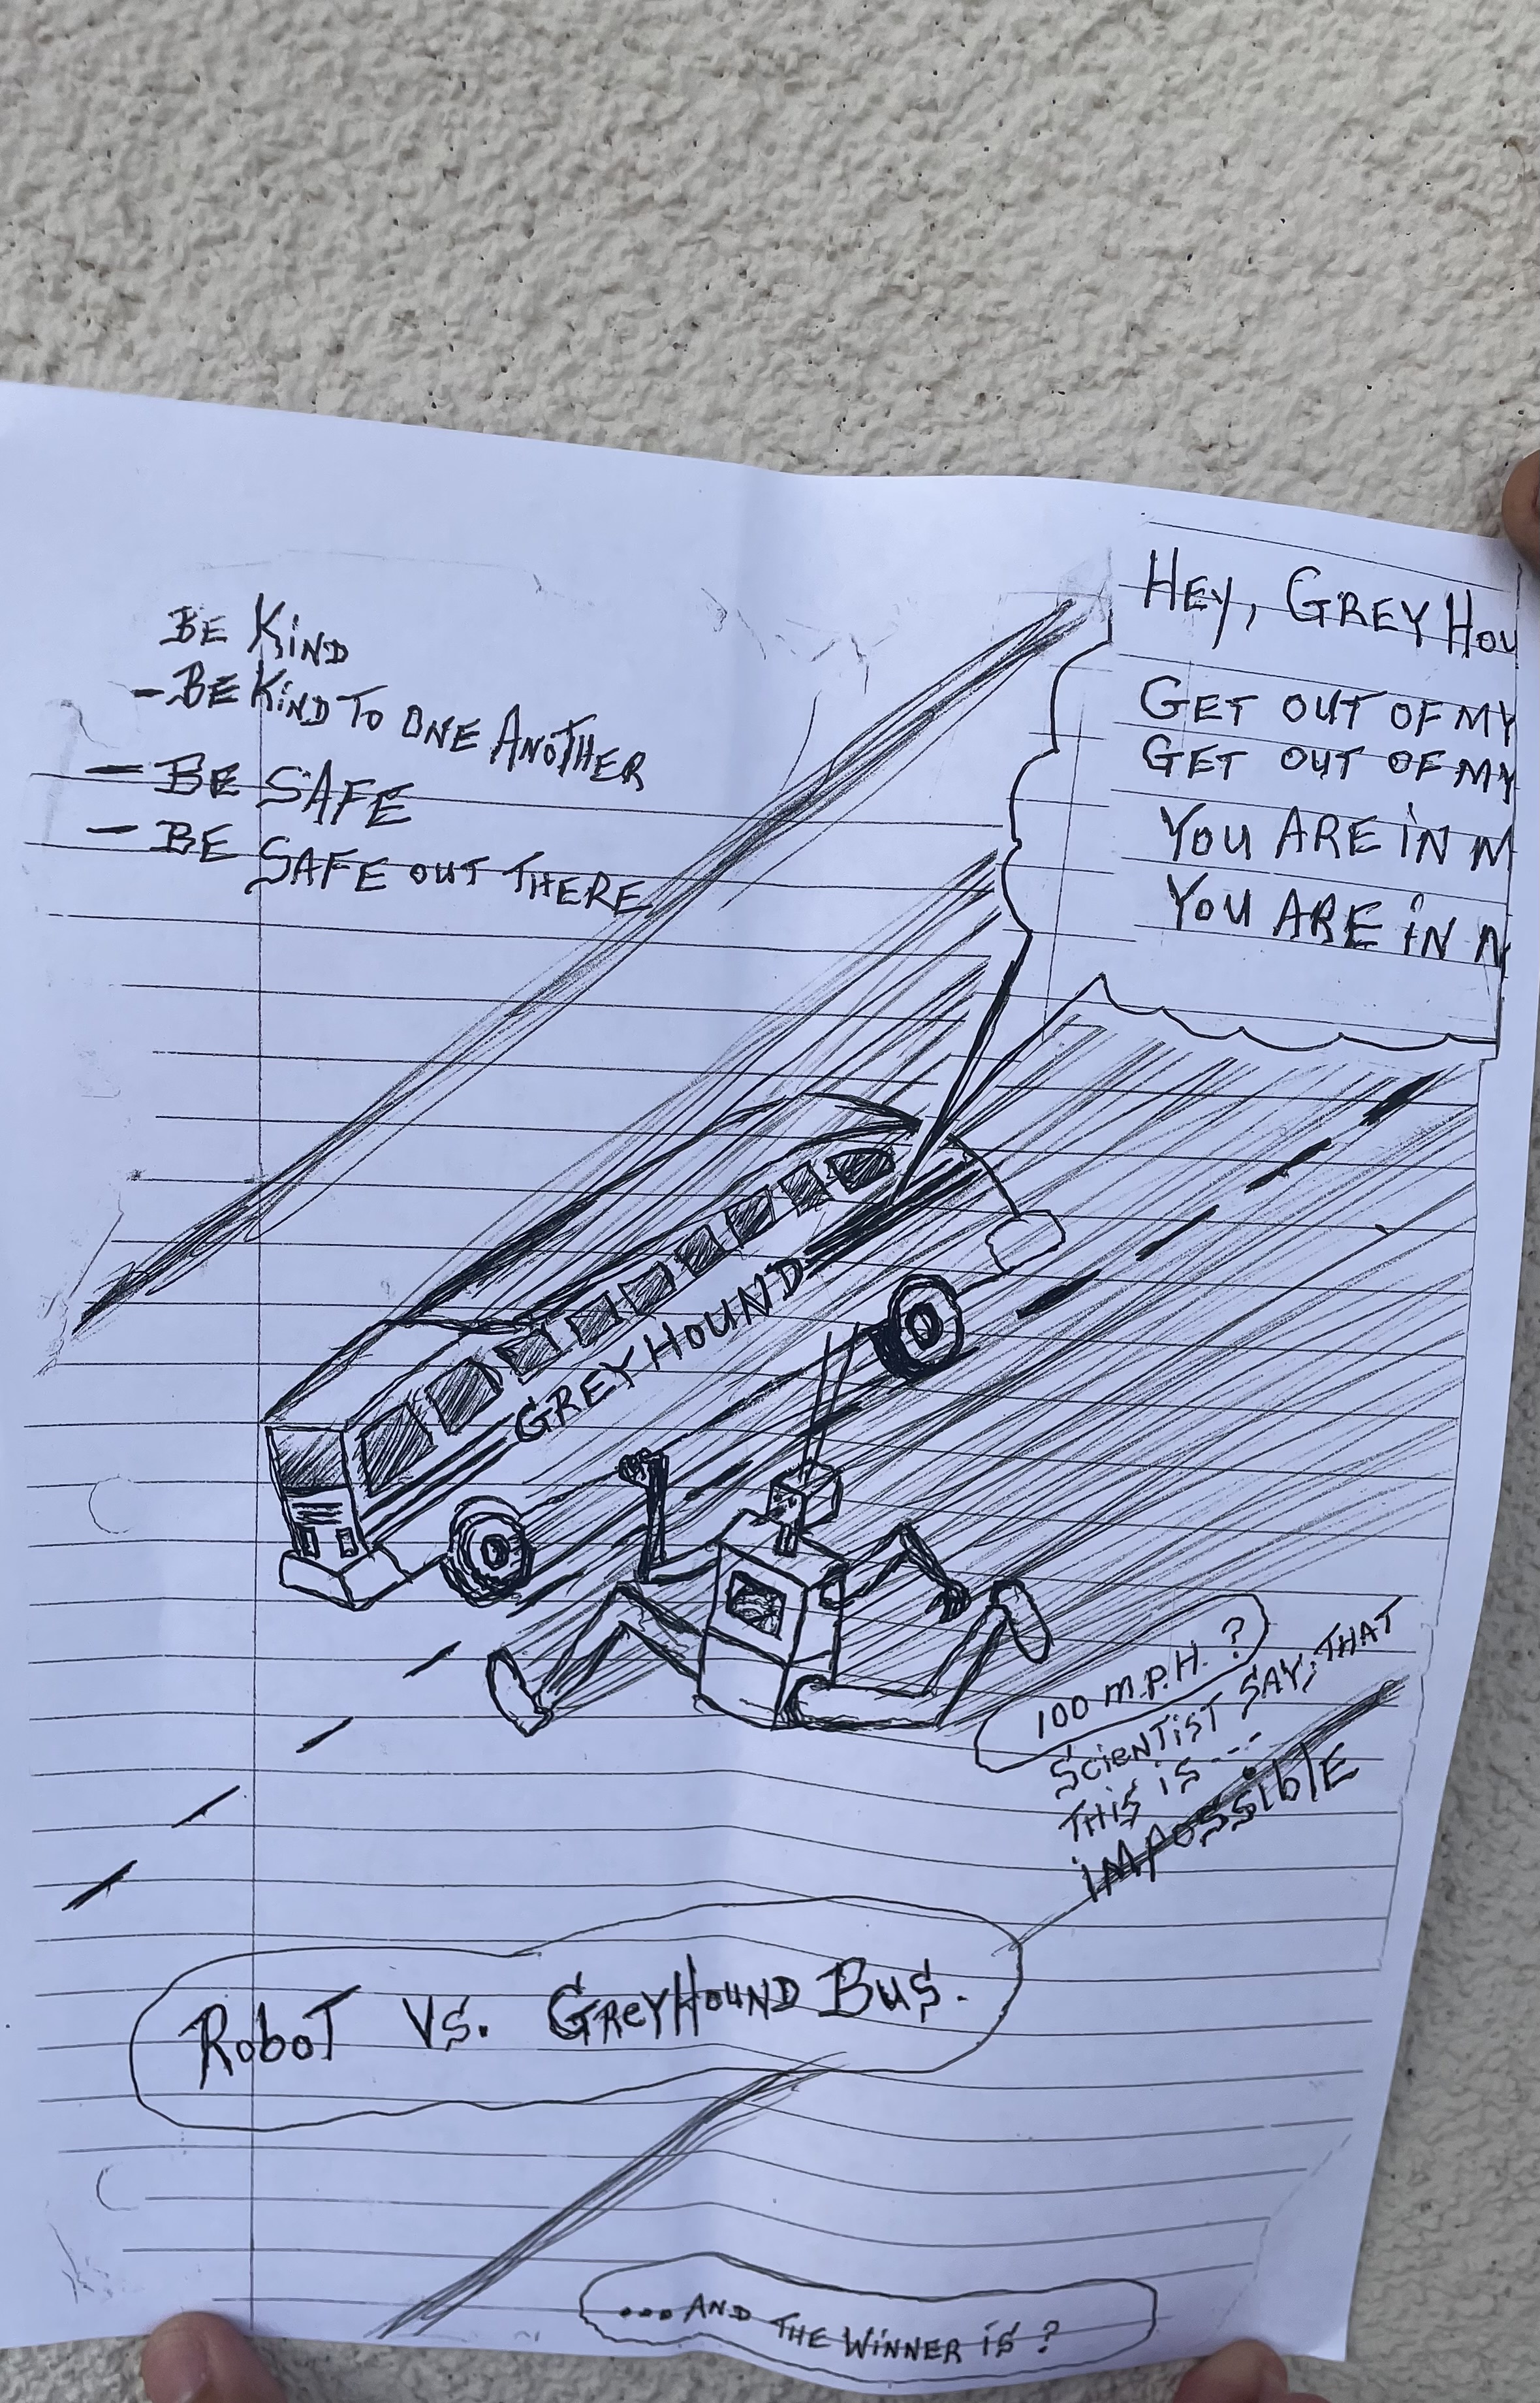 BE KIND
- BE KIND TO ONE ANOTHER
- BE SAFE
- BE SAFE OUT THERE
HEY, GREY HOU
GET OUT OF MY
GET OUT OF MY
YOU ARE IN M
YOU ARE IN
GREYHOUND
100 M.P.H. ?
SCIENTIST SAY, THAT
THIS IS ---
IMPOSSIBLE
ROBOT VS. GREYHOUND BUS.
... AND THE WINNER IS ?